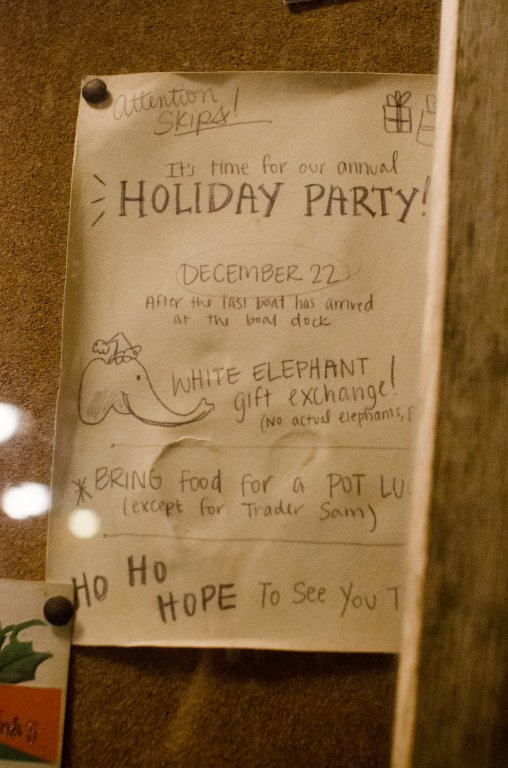 Attention
Skips!
It's time for our annual
HOLIDAY PARTY!
DECEMBER 22
After the last boat has arrived
at the boat dock
WHITE ELEPHANT
gift exchange!
(No actual elephants,
*BRING food for a POT LU
(except for Trader Sam)
HO HO
HOPE To See You T